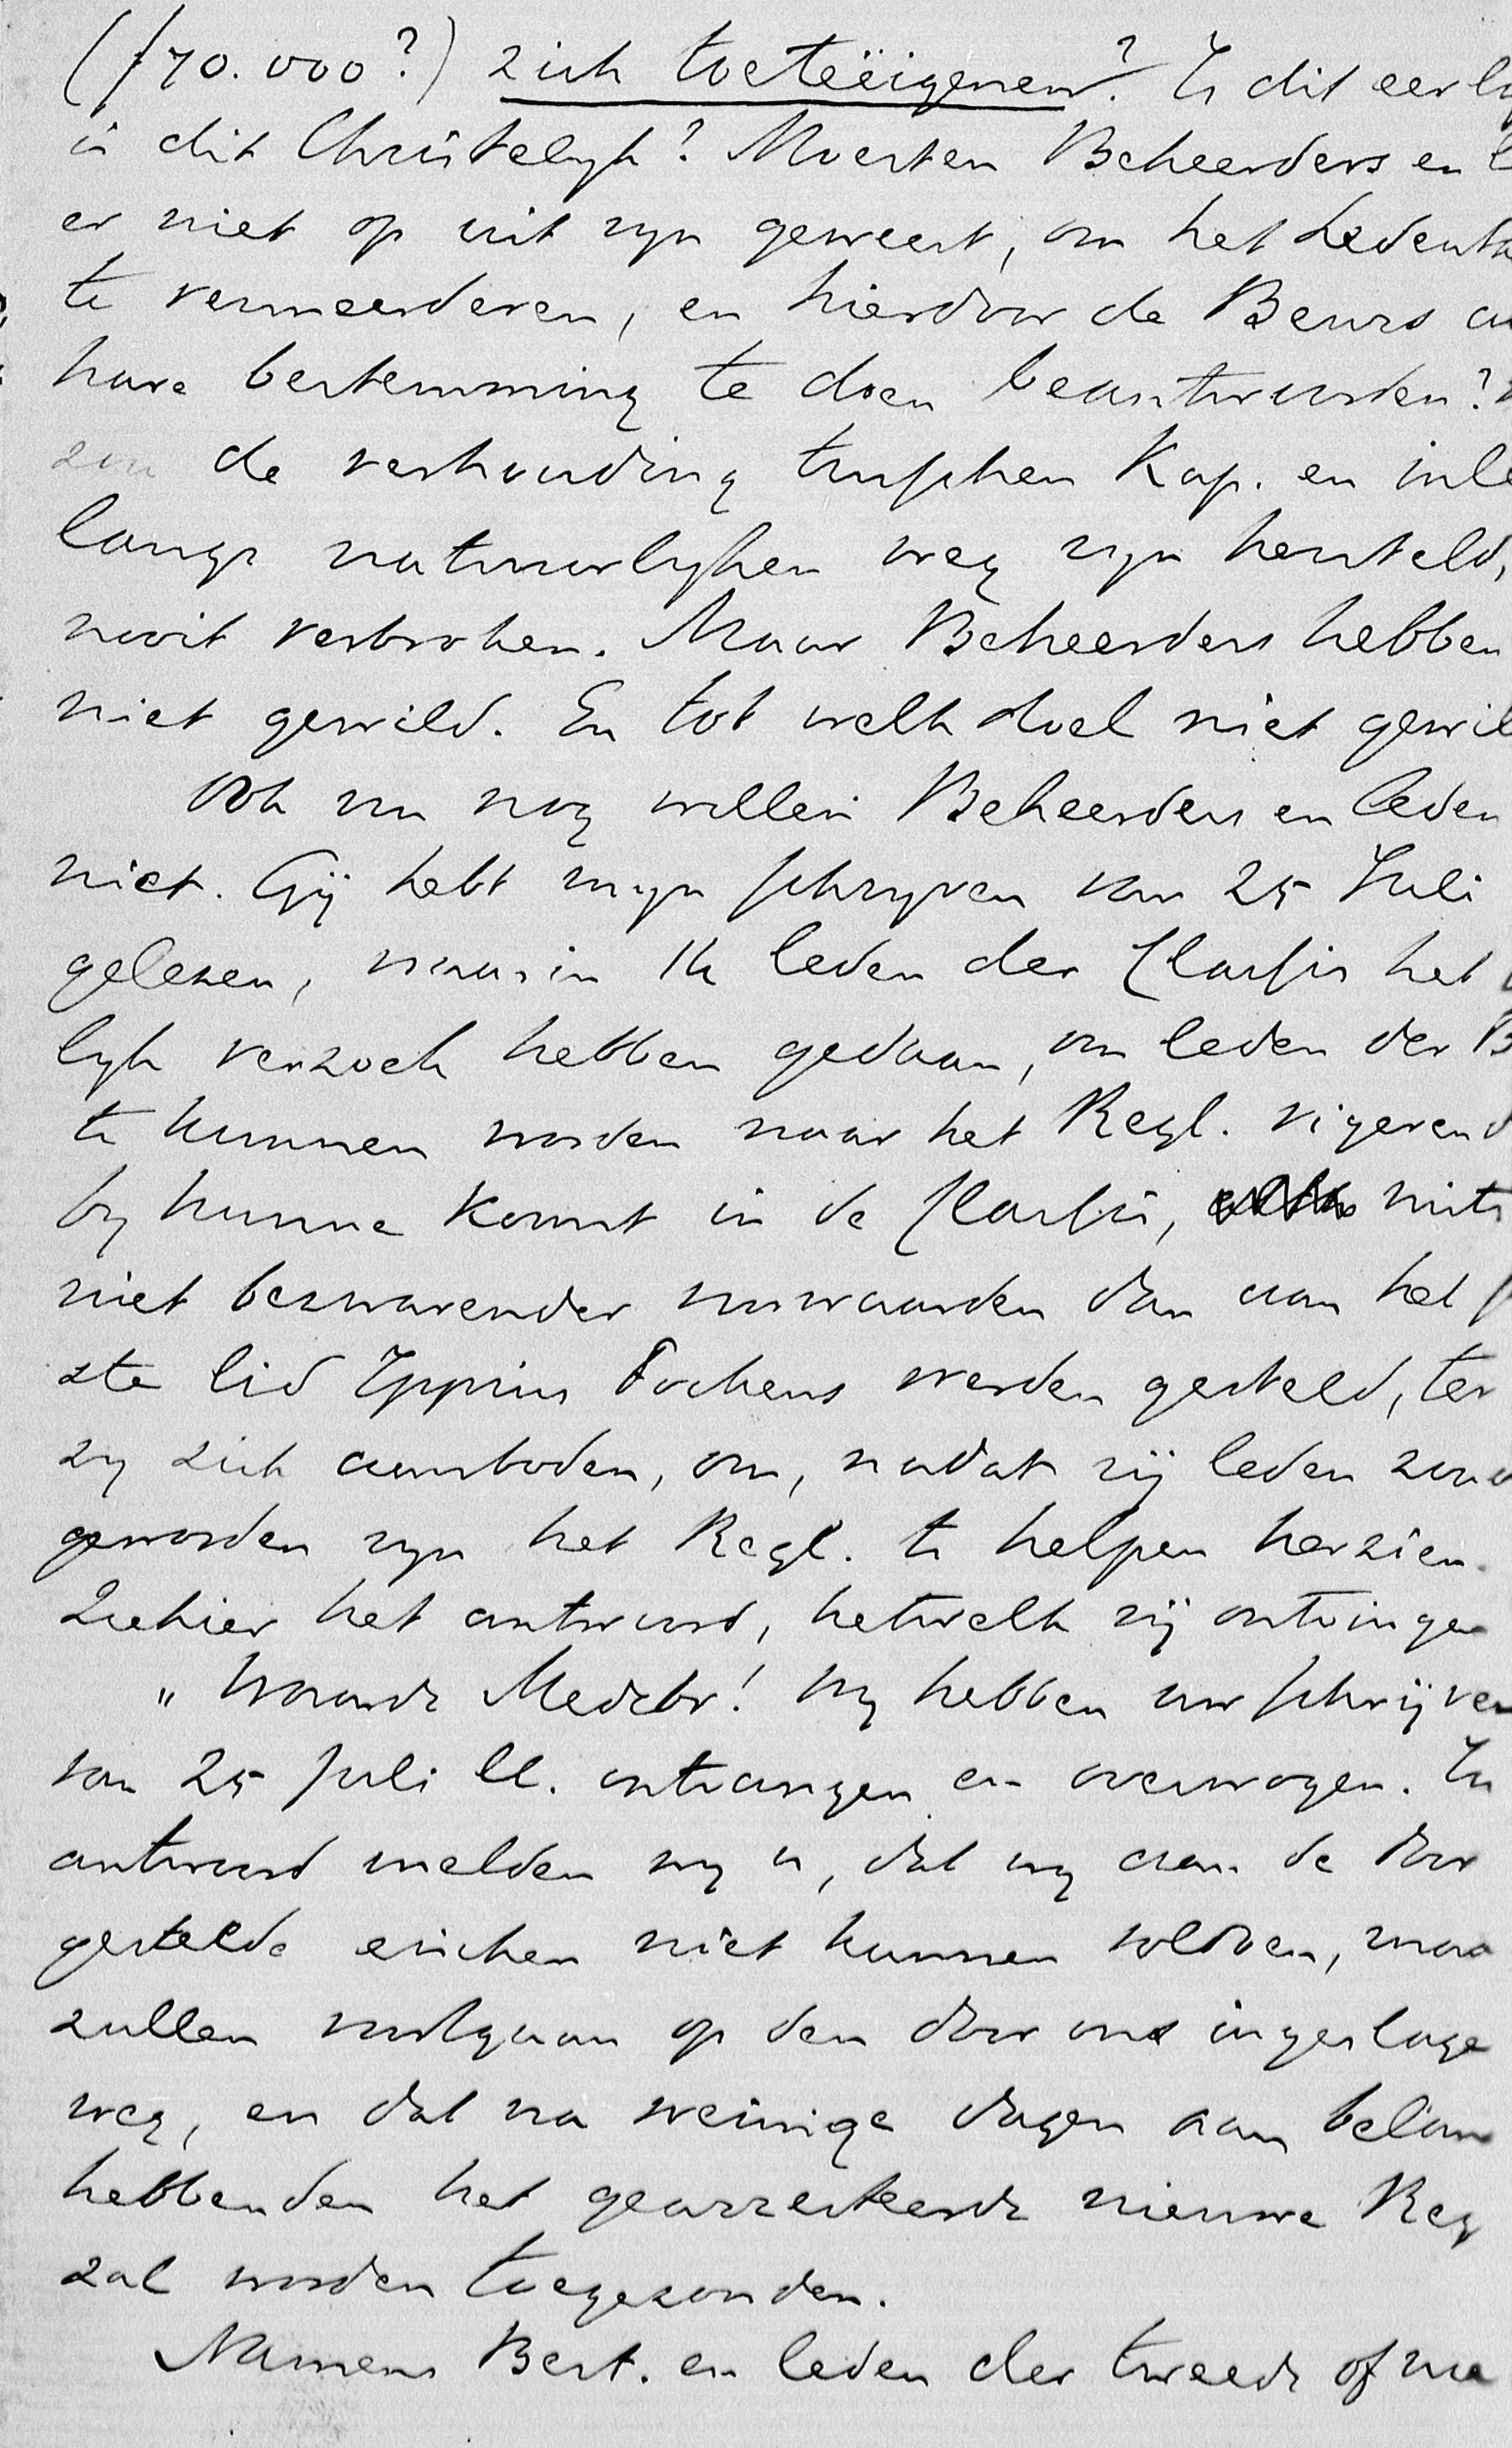 (ƒ70.000?) zich toeteëigenen? Is dit eerly
is dit Christelyk? Moesten Beheerders en l
er niet op uit zyn geweest, om het Ledenta
te vermeerderen, en hierdoor de Beurs aa
hare bestemming te doen beantwoorden?
zou de verhouding tusschen Kap. en inle
langs natuurlyken weg zyn hersteld,
nooit verbroken. Maar Beheerders hebben
niet gewild. En tot welk doel niet gewil
Ook nu nog willen Beheerders en leden
niet. Gij hebt myn schryven van 25 Juli
gelezen, waarin 14 leden der Classis het
lyk verzoek hebben gedaan, om leden der B
te kunnen worden naar het Regl. vigerend
by hunne komst in de Classis, mits
niet bezwarender voorwaarden dan aan het
ste lid Ippius Fockens werden gesteld, ter
zy zich aanboden, om, nadat zij leden zou
geworden zyn het Regl. te helpen herzien.
Ziehier het antwoord, hetwelk zij ontvingen
„Waarde Medebr! Wy hebben uw schrijven
van 25 Juli ll. ontvangen en overwogen. In
antwoord melden wy u, dat wy aan de door
gestelde eischen niet kunnen voldoen, maa
zullen voortgaan op den door ons ingeslage
weg, en dat na weinige dagen aan belan
hebbenden het gearresteerde nieuwe Reg
zal worden toegezonden.
Namens Best. en leden der tweede of na